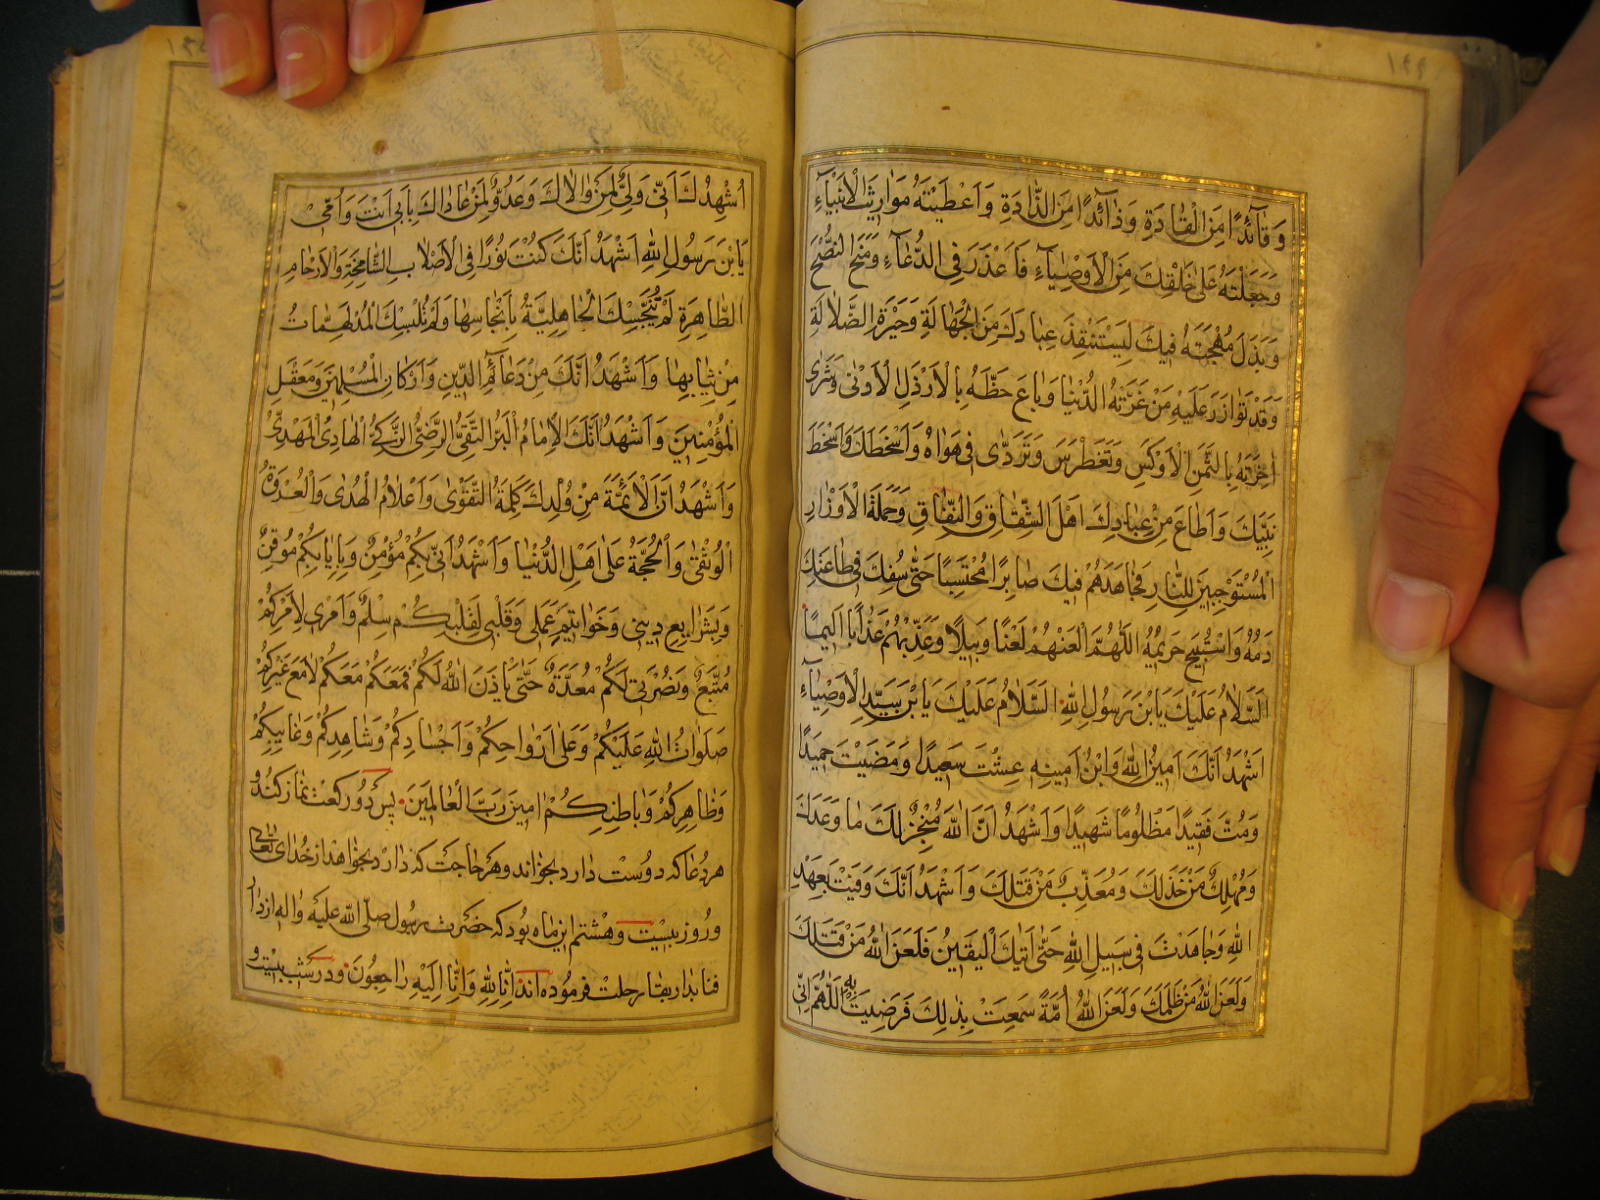 وَ قٰآئِدًا مِنَ الْقٰادَةِ وَذٰآئِدًا مِنَ الذّٰادَةِ وَاَعْطَيْتَهُ مَوٰارِيثَ الْاَنْبِيٰآءِ
وَجَعَلْتَهُ عَلىٰ خَلْقِكَ مِنَ الْاَوْصِيٰآءِ فَاَعْذَرَ فِى الدُّعٰآءِ وَمَنَحَ النُّصْحَ
وَبَذَلَ مُهْجَتَهُ فِيكَ لِيَسْتَنْقِذَ عِبٰادَكَ مِنَ الْجَهٰالَةِ وَحَيْرَةِ الضَّلٰالَةِ
وَقَدْ تَوٰازَرَ عَلَيْهِ مَنْ غَرَّتْهُ الدُّنْيٰا وَبٰاعَ حَظَّهُ بِالْاَرْذَلِ الْاَدْنىٰ وَشَرىٰ
اٰخِرَتَهُ بِالثَّمَنِ الْاَوْكَسِ وَتَغَطْرَسَ وَتَرَدّٰى فِى هَوٰاهُ وَاَسْخَطَكَ وَاَسْخَطَ
نَبِيَّكَ وَاَطٰاعَ مِنْ عِبٰادِكَ اَهْلَ الشِّقٰاقِ وَالنِّفٰاقِ وَحَمَلَةَ الْاَوْزٰارِ
الْمُسْتَوْجِبِينَ لِلنّٰارِ فَجٰاهَدَهُمْ فِيكَ صٰابِرًا مُحْتَسِبًا حَتّٰى سُفِكَ فِى طٰاعَتِكَ
دَمُهُ وَاسْتُبِيحَ حَرِيمُهُ اَللّٰهُمَّ الْعَنْهُمْ لَعْنًا وَبِيلًا وَعَذِّبْهُمْ عَذٰابًا اَلِيمًا
اَلسَّلٰامُ عَلَيْكَ يَا بْنَ رَسُولِ اللّٰهِ اَلسَّلٰامُ عَلَيْكَ يَا بْنَ سَيِّدِ الْاَوْصِيٰآءِ
اَشْهَدُ اَنَّكَ اَمِينُ اللّٰهِ وَابْنُ اَمِينِهِ عِشْتَ سَعِيدًا وَمَضَيْتَ حَمِيدًا
وَمُتَّ فَقِيدًا مَظْلُومًا شَهِيدًا وَاَشْهَدُ اَنَّ اللّٰهَ مُنْجِزٌ لَكَ مٰا وَعَدَكَ
وَمُهْلِكٌ مَنْ خَذَلَكَ وَمُعَذِّبٌ مَنْ قَتَلَكَ وَاَشْهَدُ اَنَّكَ وَفَيْتَ بِعَهْدِ
اللّٰهِ وَجٰاهَدْتَ فِى سَبِيلِ اللّٰهِ حَتّٰى اَتٰيكَ الْيَقِينُ فَلَعَنَ اللّٰهُ مَنْ قَتَلَكَ
وَلَعَنَ اللّٰهُ مَنْ ظَلَمَكَ وَلَعَنَ اللّٰهُ اُمَّةً سَمِعَتْ بِذٰلِكَ فَرَضِيَتْ بِهِ اَللّٰهُمَّ اِنِّى
اُشْهِدُكَ اَنِّى وَلِىٌّ لِمَنْ وٰالٰاكَ وَعَدُوٌّ لِمَنْ عٰادٰاكَ بِاَبِى اَنْتَ وَاُمِّى
يَا بْنَ رَسُولِ اللّٰهِ اَشْهَدُ اَنَّكَ كُنْتَ نُورًا فِى الْاَصْلٰابِ الشّٰامِخَةِ وَالْاَرْحٰامِ
الطّٰاهِرَةِ لَمْ تُنَجِّسْكَ الْجٰاهِلِيَّةُ بِاَنْجٰاسِهٰا وَلَمْ تُلْبِسْكَ الْمُدْلَهِمّٰاتُ
مِنْ ثِيٰابِهٰا وَاَشْهَدُ اَنَّكَ مِنْ دَعٰآئِمِ الدِّينِ وَاَرْكٰانِ الْمُسْلِمِينَ وَمَعْقِلِ
الْمُؤْمِنِينَ وَاَشْهَدُ اَنَّكَ الْاِمٰامُ الْبَرُّ التَّقِىُّ الرَّضِىُّ الزَّكِىُّ الْهٰادِى الْمَهْدِىُّ
وَاَشْهَدُ اَنَّ الْاَئِمَّةَ مِنْ وُلْدِكَ كَلِمَةُ التَّقْوٰى وَاَعْلٰامُ الْهُدٰى وَالْعُرْوَةُ
الْوُثْقٰى وَالْحُجَّةُ عَلٰى اَهْلِ الدُّنْيٰا وَاَشْهَدُ اَنِّى بِكُمْ مُؤْمِنٌ وَبِاِيٰابِكُمْ مُوقِنٌ
وَبِشَرٰايِعِ دِينِى وَخَوٰاتِيمِ عَمَلِى وَقَلْبِى لِقَلْبِكُمْ سِلْمٌ وَاَمْرِى لِاَمْرِكُمْ
مُتَّبِعٌ وَنُصْرَتِى لَكُمْ مُعَدَّةٌ حَتّٰى يَاْذَنَ اللّٰهُ لَكُمْ فَمَعَكُمْ مَعَكُمْ لٰا مَعَ غَيْرِكُمْ
صَلَوٰاتُ اللّٰهِ عَلَيْكُمْ وَعَلٰى اَرْوٰاحِكُمْ وَاَجْسٰادِكُمْ وَشٰاهِدِكُمْ وَغٰايِبِكُمْ
وَظٰاهِرِكُمْ وَبٰاطِنِكُمْ اٰمِينَ رَبَّ الْعٰالَمِينَ پس دو ركعت نماز كند و
هر دعا كه دوست دارد بخواند و هر حاجت كه دارد بخواهد از خداى تعالى
و روز بيست و هشتم اين ماه بود كه حضرت رسول صلّى اللّٰه عليه و اله از دار
فنا بدار بقا رحلت فرموده اند اِنّٰا لِلّٰهِ وَاِنّٰا اِلَيْهِ رٰاجِعُونَ و در شب بيست و